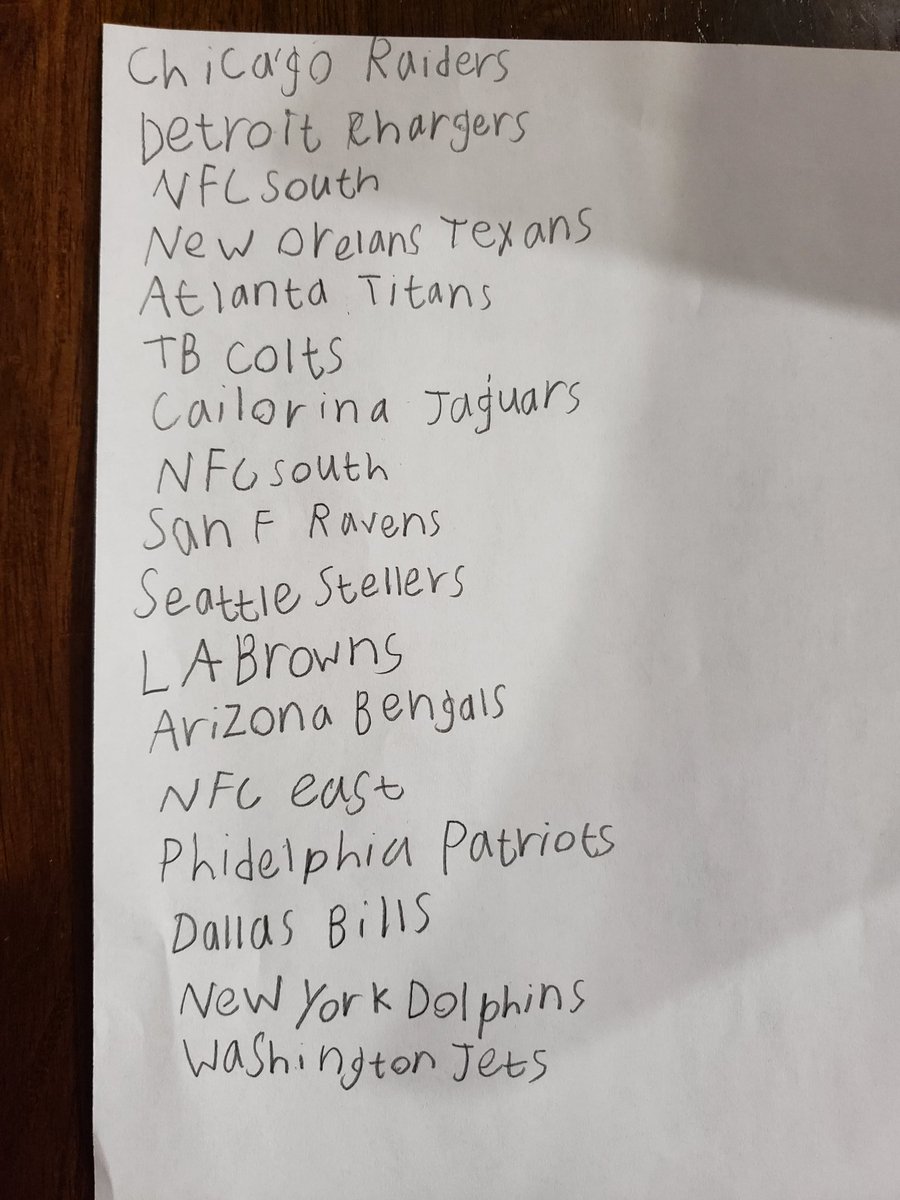 Chicago Raiders
Detroit Chargers
NFC south
New Orelans Texans
Atlanta Titans
TB Colts
Cailorina Jaguars
NFC south
San F Ravens
Seattle Stellers
LA Browns
Arizona Bengals
NFC east
Phidelphia Patriots
Dallas Bills
New York Dolphins
Washington Jets